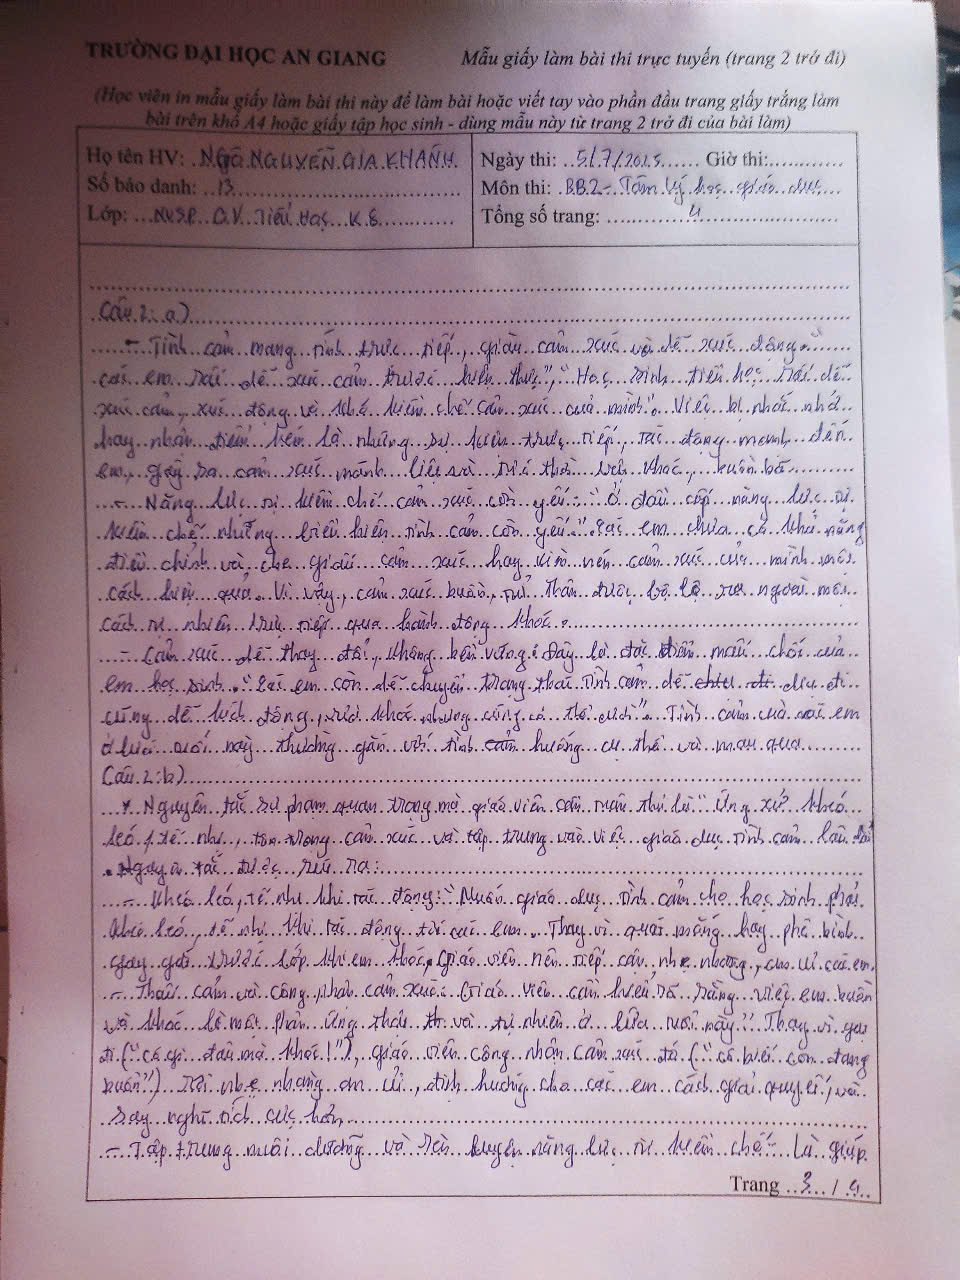 TRƯỜNG ĐẠI HỌC AN GIANG Mẫu giấy làm bài thi trực tuyến (trang 2 trở đi)
(Học viên in mẫu giấy làm bài thi này để làm bài hoặc viết tay vào phần đầu trang giấy trắng làm
bài trên khổ A4 hoặc giấy tập học sinh - dùng mẫu này từ trang 2 trở đi của bài làm)
Họ tên HV: NGÔ NGUYỄN GIA KHÁNH
Số báo danh: 13
Lớp: NVSP G.V Tiểu Học K.8
Ngày thi: 5/7/2025 Giờ thi:
Môn thi: BB2 - Tâm lý học giáo dục
Tổng số trang: 4
Câu 2: a)
- Tình cảm mang tính trực tiếp, giàu cảm xúc và dễ xúc động: "
các em rất dễ xúc cảm trước hiện thực", "Học sinh tiểu học rất dễ
xúc cảm, xúc động và khó kiềm chế cảm xúc của mình". Việc bị nhắc nhở
hay nhận điểm kém là những sự kiện trực tiếp, tác động mạnh đến
em, gây ra cảm xúc mãnh liệt và tức thời như khóc, buồn bã
- Năng lực tự kiềm chế cảm xúc còn yếu: "ở đầu cấp năng lực tự
kiềm chế những biểu hiện tình cảm còn yếu". Các em chưa có khả năng
điều chỉnh và che giấu cảm xúc hay kìm nén cảm xúc của mình một
cách hiệu quả. Vì vậy, cảm xúc buồn, tủi thân được bộc lộ ra ngoài một
cách tự nhiên trực tiếp qua hành động khóc.
- Cảm xúc dễ thay đổi, không bền vững: Đây là đặc điểm mấu chốt của
em học sinh. "Các em còn dễ chuyển trạng thái tình cảm dễ dịu đi
cũng dễ kích động, vừa khóc nhưng cũng có thể cười". Tình cảm của các em
ở lứa tuổi này thường gắn với tình huống cụ thể và mau qua
Câu 2: b)
* Nguyên tắc sư phạm quan trọng mà giáo viên cần tuân thủ là "Ứng xử khéo
léo, tế nhị, tôn trọng cảm xúc và tập trung vào việc giáo dục tình cảm lâu dài"
. Nguyên tắc được rút ra:
- Khéo léo, tế nhị khi tác động: "Muốn giáo dục tình cảm cho học sinh phải
khéo léo, tế nhị khi tác động tới các em". Thay vì quát mắng hay phê bình
gay gắt trước lớp khi em khóc, giáo viên nên tiếp cận nhẹ nhàng, an ủi các em.
- Thấu cảm và công nhận cảm xúc: Giáo viên cần hiểu rõ rằng việc em buồn
và khóc là một phản ứng thật và tự nhiên ở lứa tuổi này". Thay vì gạt
đi ("có gì đâu mà khóc!"), giáo viên công nhận cảm xúc đó ("cô biết con đang
buồn"). Rồi nhẹ nhàng an ủi, định hướng cho các em cách giải quyết, và
suy nghĩ tích cực hơn
- Tập trung nuôi dưỡng và rèn luyện năng lực tự kiềm chế: Là giúp
Trang 3 / 4